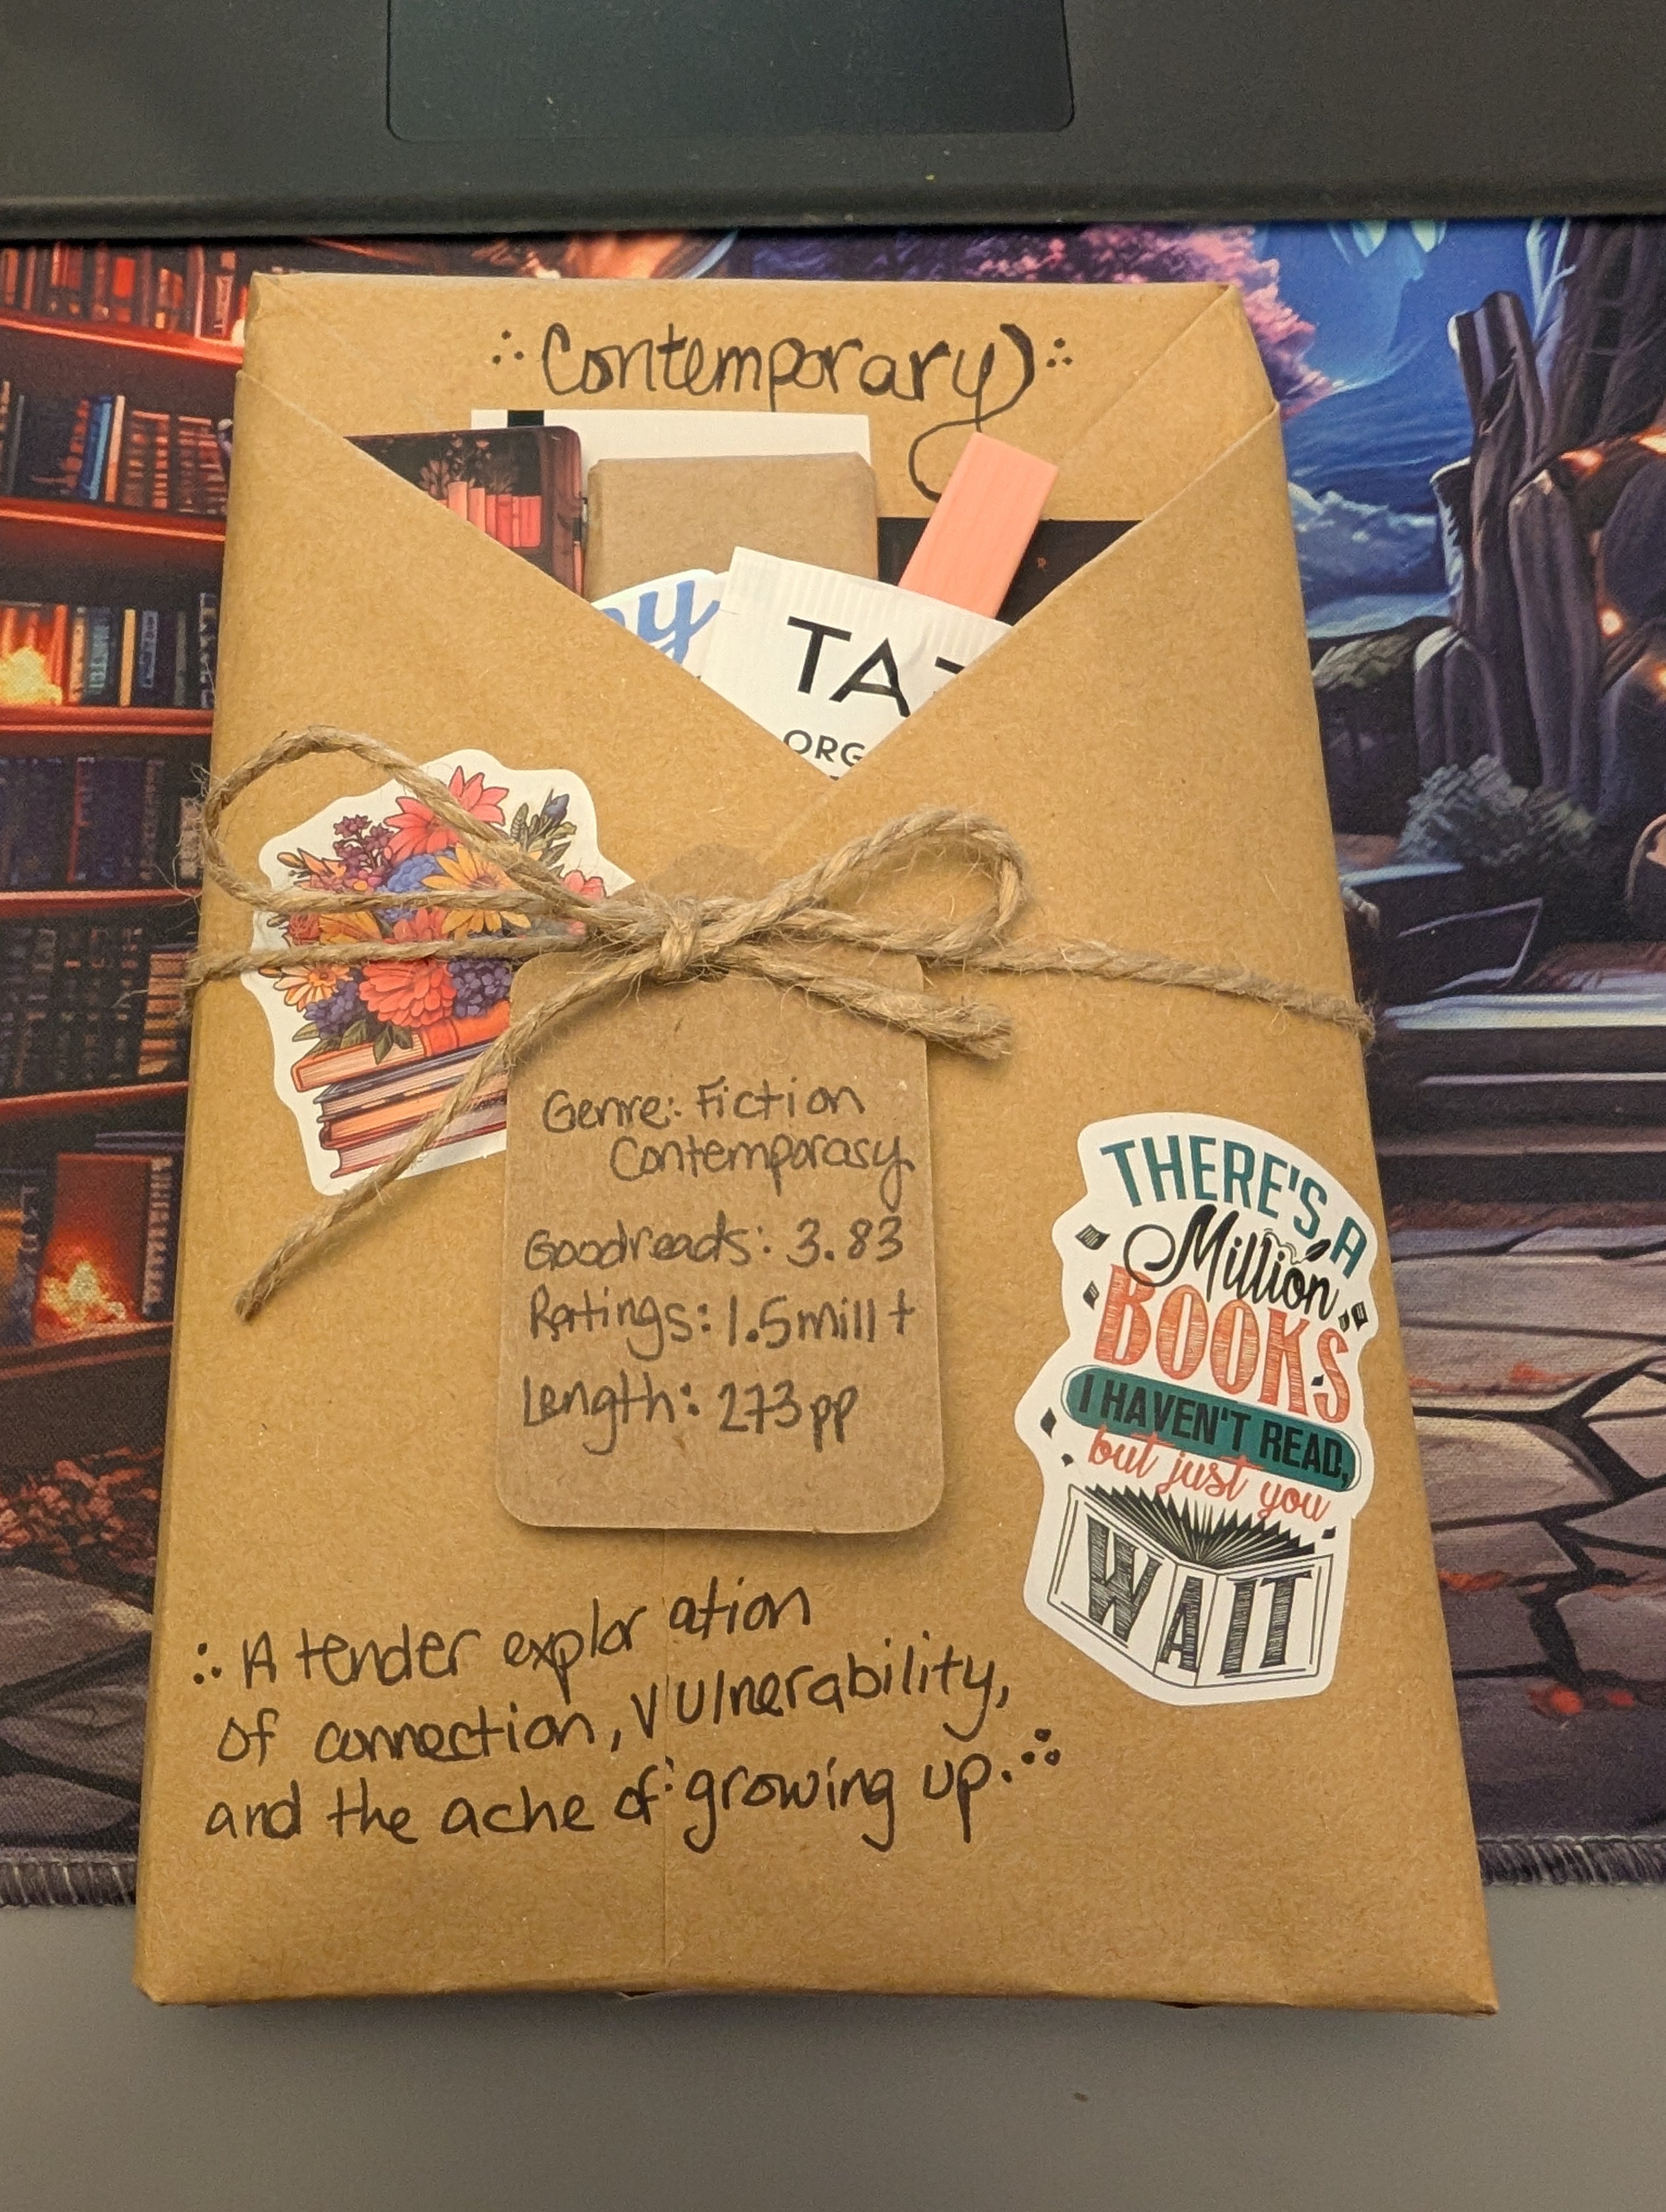 Contemporary
y
TAZ
ORG
Genre: Fiction
Contemporary
Goodreads: 3.83
Ratings: 1.5mill+
Length: 273pp
THERE'S A
Million
BOOKS
I HAVEN'T READ,
but just you
WAIT
A tender exploration
of connection, vulnerability,
and the ache of growing up.